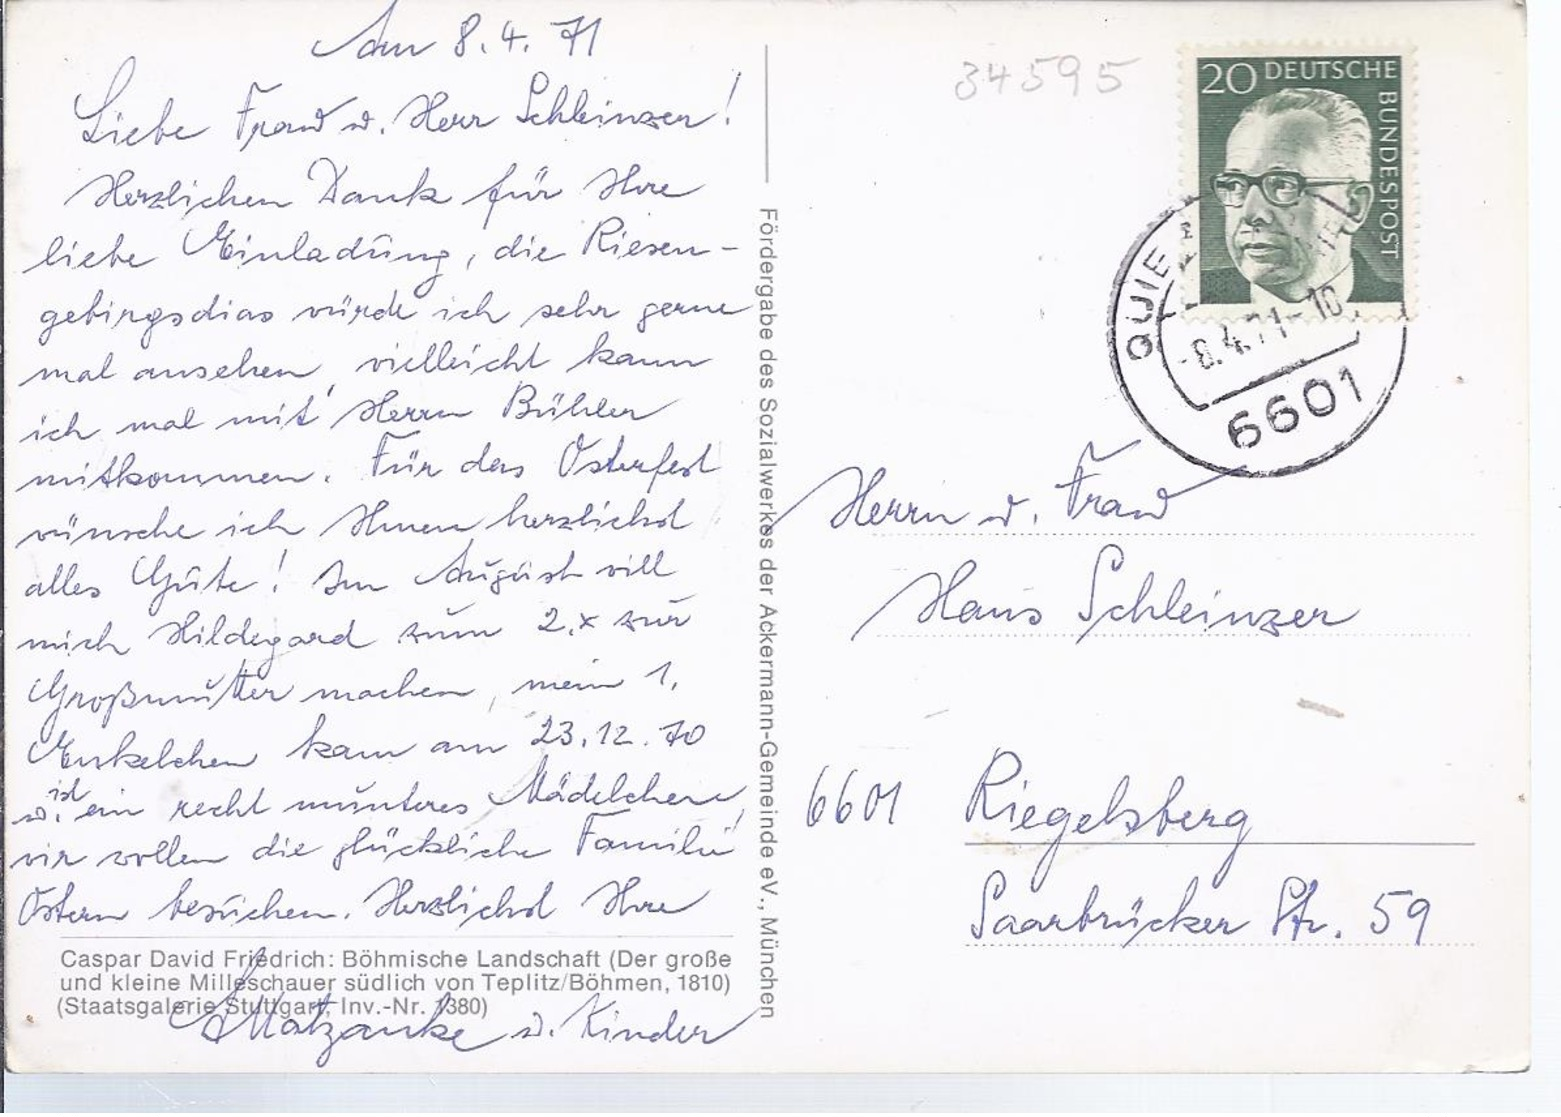 Am 8.4.71
Liebe Frau u. Herr Schleinzer!
Herzlichen Dank für Ihre
liebe Einladung, die Riesen-
gebirgsdias würde ich sehr gerne
mal ansehen, vielleicht kann
ich mal mit Herrn Bühler
mitkommen. Für das Osterfest
wünsche ich Ihnen herzlichst
alles Gute! Im August will
mich Hildegard zum 2.x zur
Großmutter machen, mein 1.
Enkelchen kam am 23.12.70
u. ist ein recht munteres Mädelchen,
wir wollen die glückliche Familie
Ostern besuchen. Herzlichst Ihre
Matzanke u. Kinder
Caspar David Friedrich: Böhmische Landschaft (Der große
und kleine Milleschauer südlich von Teplitz/Böhmen, 1810)
(Staatsgalerie Stuttgart, Inv.-Nr. 1380)
Fördergabe des Sozialwerkes der Ackermann-Gemeinde eV., München
34595
20 DEUTSCHE
BUNDESPOST
QUIE
-8.4.71-10
6601
Herrn u. Frau
Hans Schleinzer
6601 Riegelsberg
Saarbrücker Str. 59